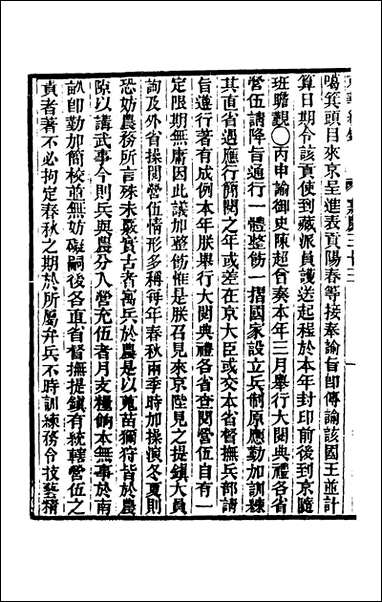 噶箕頭目來京呈進表貢陽春等接奉諭旨卽傳諭該國王並計
算日期令該貢使到藏派員護送起程於本年封印前後到京隨
班瞻觀〇丙申諭御史陳超曾奏本年三月舉行大閱典禮各省
營伍請降旨通行一體整飭一摺國家設立兵制原應勤加訓練
其直省遇應行簡閱之年或差在京大臣或交本省督撫兵部請
旨遵行著有成例本年朕舉行大閱典禮各省查閱營伍自有一
定限期無庸因此議加整飭惟是朕召見來京陛見之提鎭大員
詢及外省操閱營伍情形多稱每年春秋兩季時加操演冬夏則
恐妨農務所言殊未覈實古者寓兵於農是以蒐苗獮狩皆於農
隙以講武事今則兵與農分人營充伍者月支糧餉本無事於南
畝卽勤加簡校前無妨礙嗣後各直省督撫提鎭有統轄營伍之
責者著不必拘定春秋之期於所屬弁兵不時訓練務令技藝精